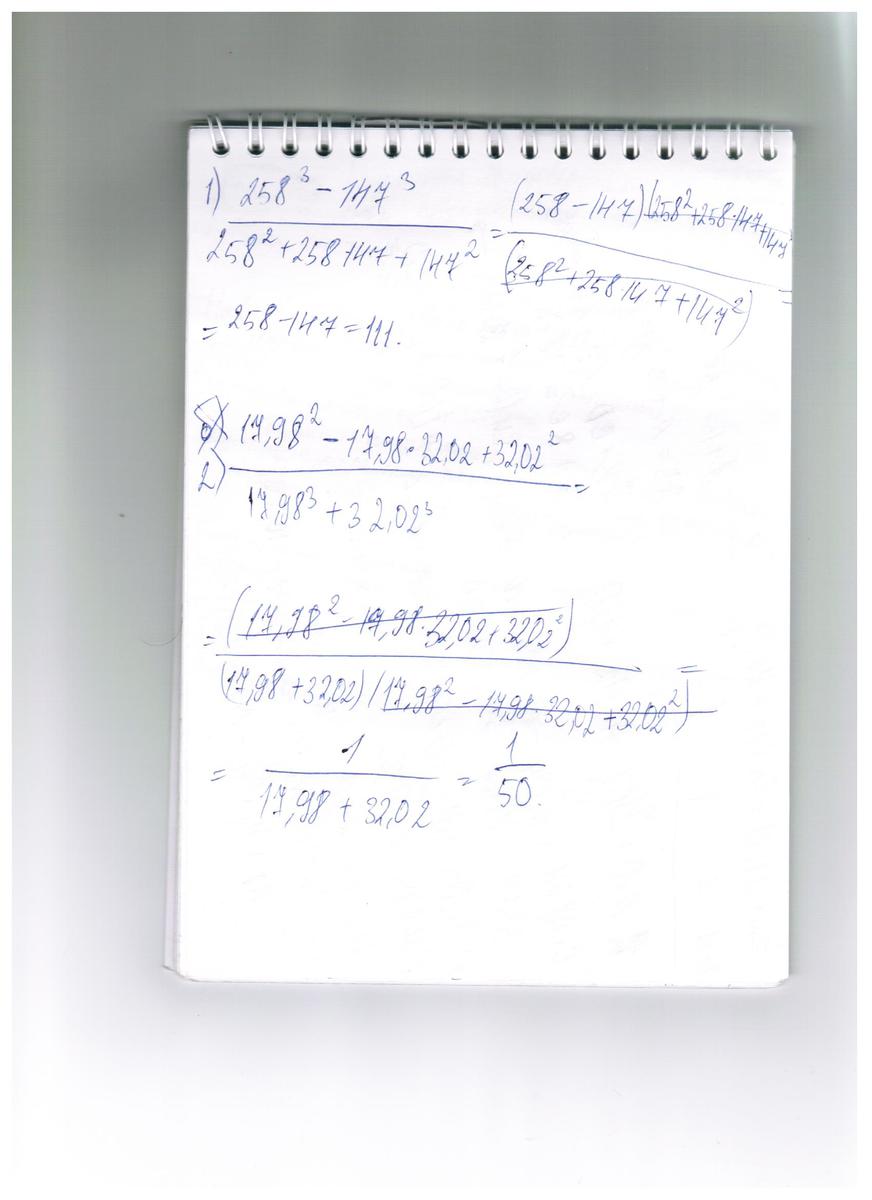 1) (258³ - 147³)/(258² + 258 147 + 147²) = ((258 - 147)(258² + 258·147 + 147²)/(258² + 258·147 + 147²) =
= 258 - 147 = 111.
2) (17,98² - 17,98·32,02 + 32,02²)/(17,98³ + 32,02³) =
= (17,98² - 17,98·32,02 + 32,02²)/((17,98 + 32,02)(17,98² - 17,98·32,02 + 32,02²)) =
= 1/(17,98 + 32,02) = 1/50.